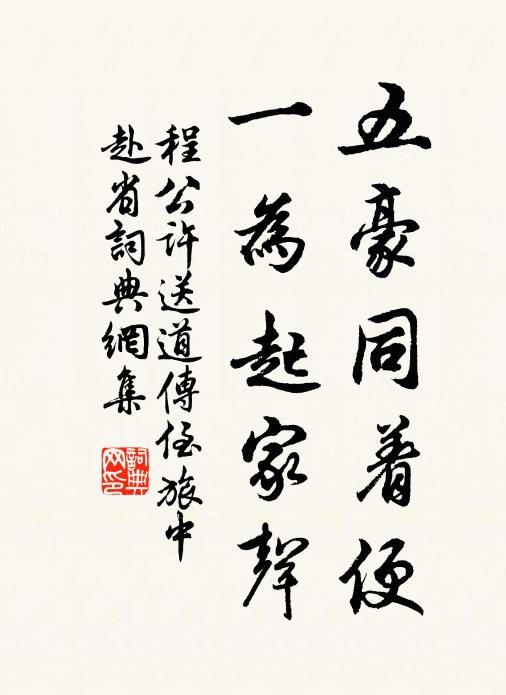 五豪同着便
一為起家聲
程公許送道傳侄旅中
赴省詞典網集
詞典网印